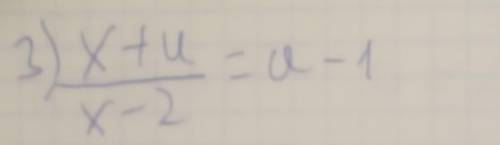 3) x+u/x-2 = a-1